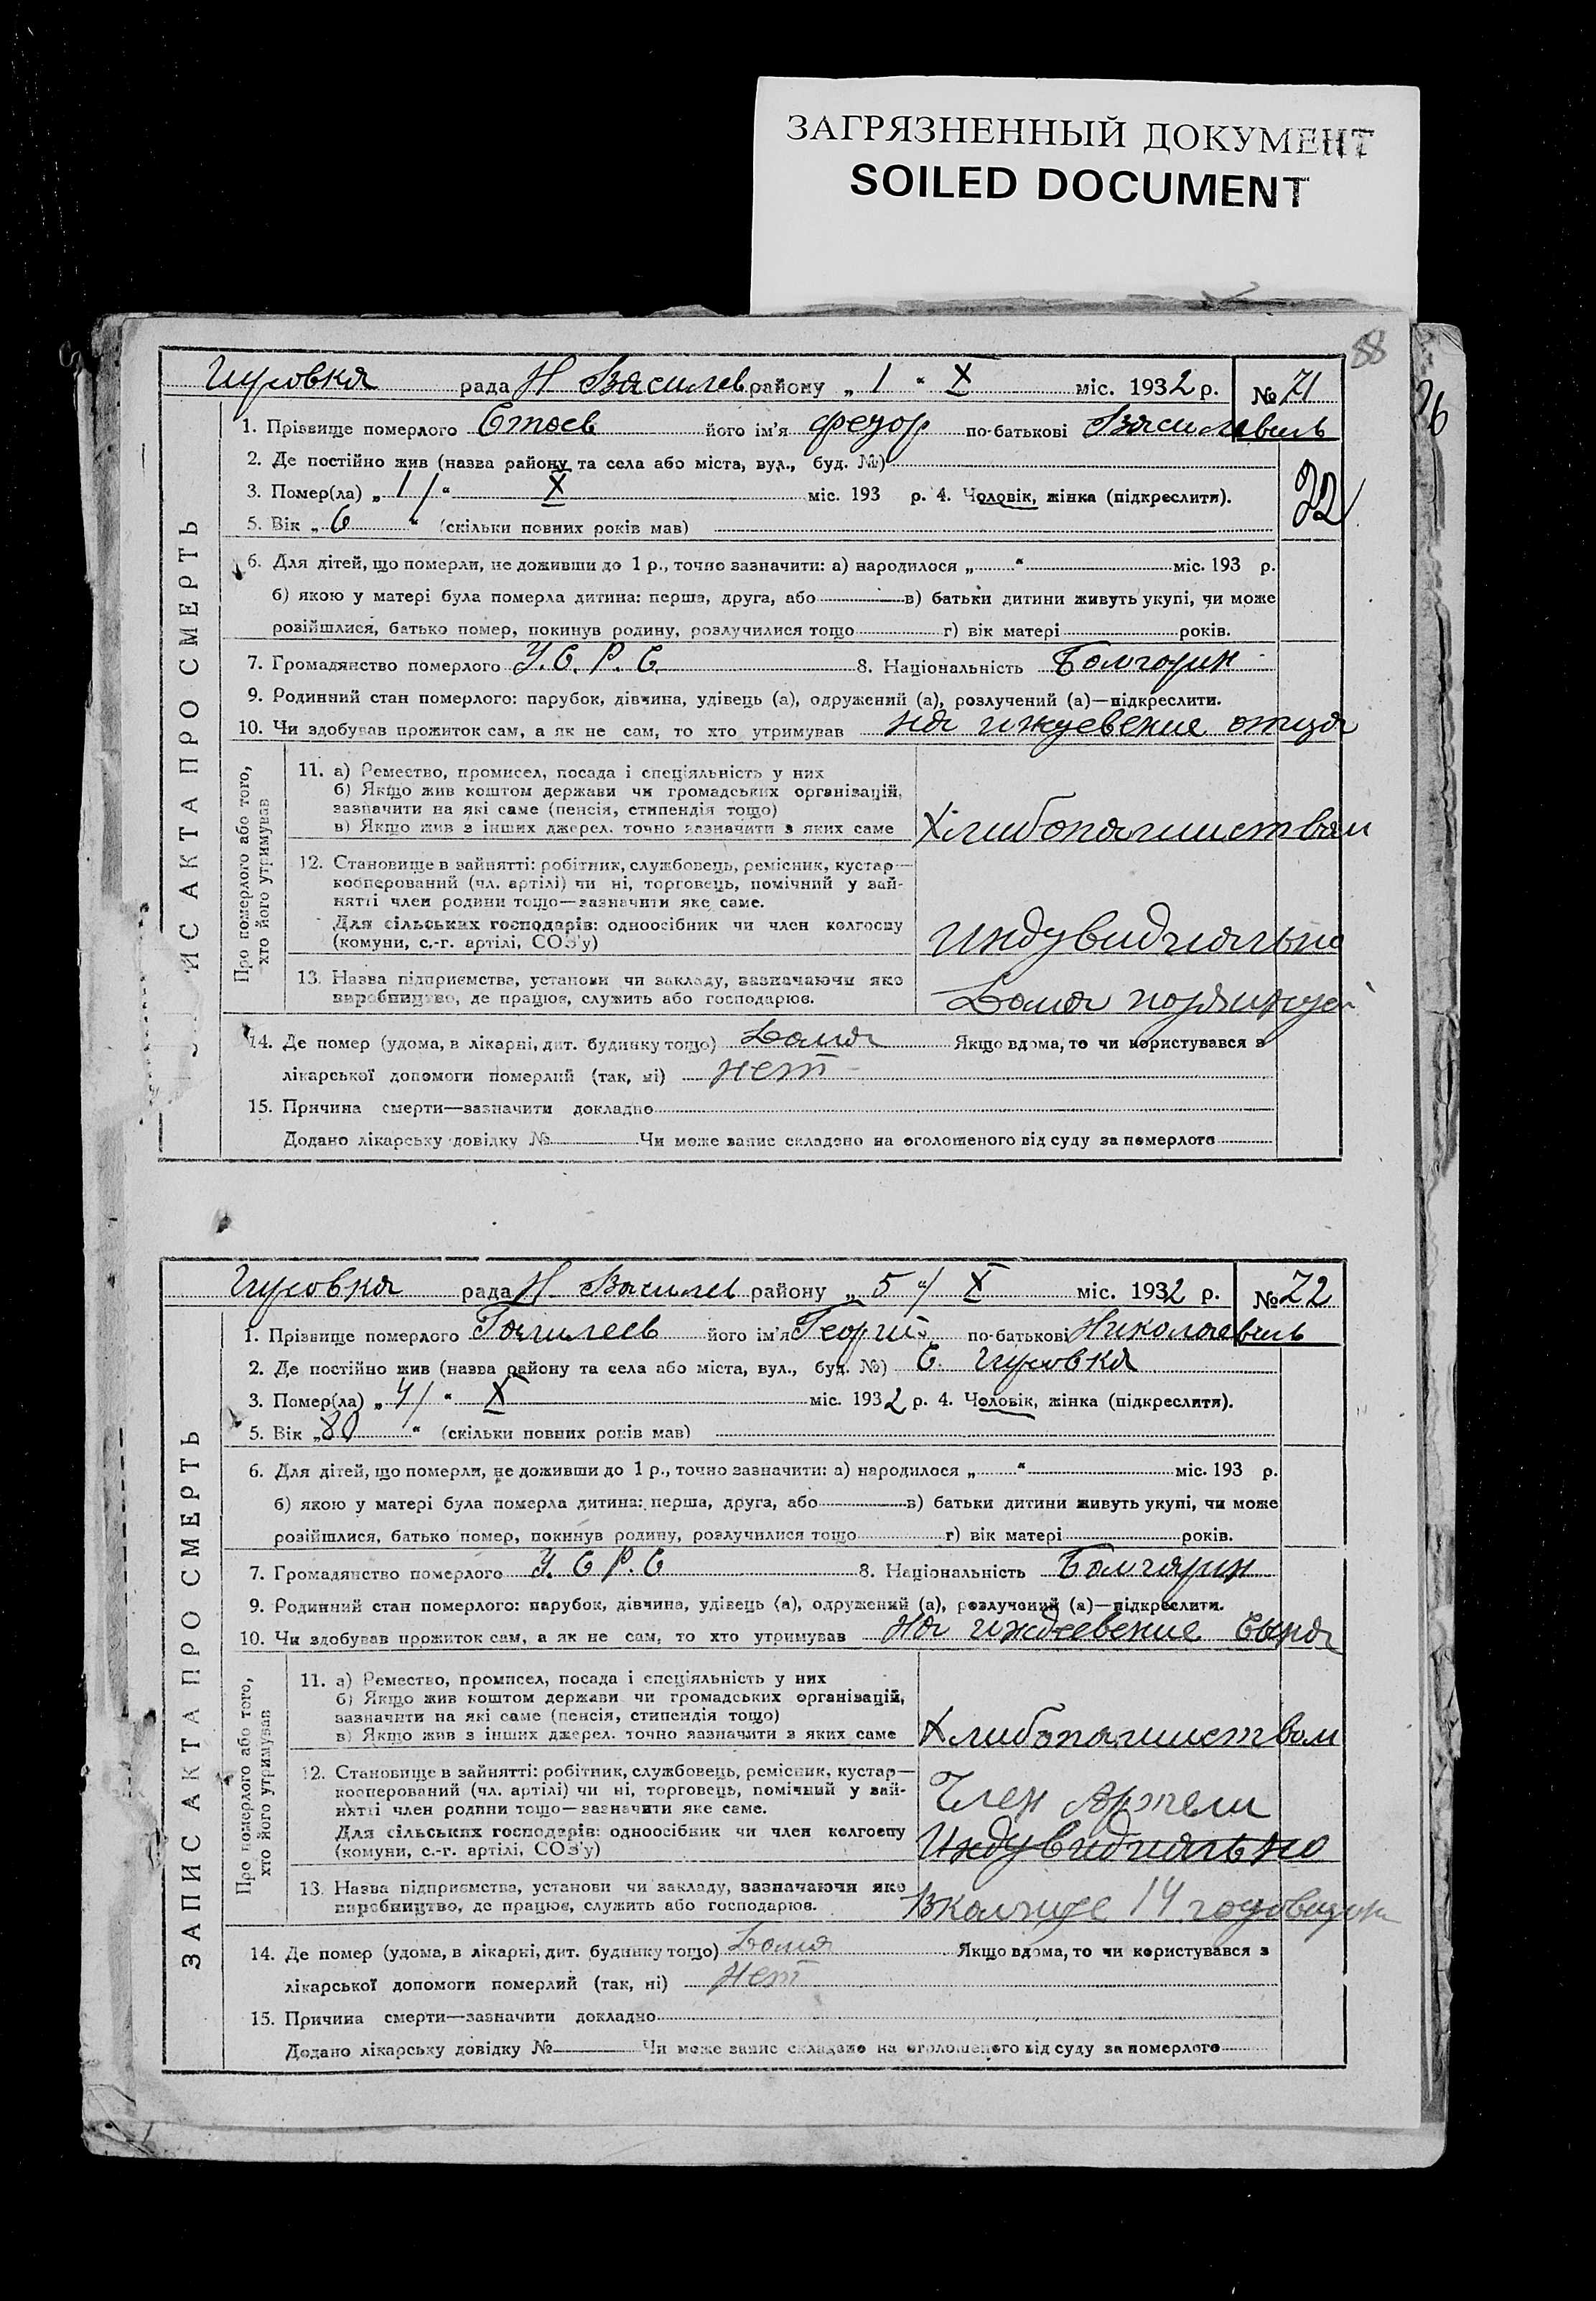 ЗАГРЯЗНЕННЫЙ ДОКУМЕНТ
SOILED DOCUMENT
88
Гировка рада Н Василев району „ 1 “ X міс. 1932 р. № 71
1. Прізвище померлого Стоев його ім'я Федор по-батькові Василевич
2. Де постійно жив (назва району та села або міста, вул., буд. №)
3. Помер(ла) „ 1 “ X міс. 193 р. 4. Чоловік, жінка (підкреслити).
22
5. Вік „ 6 “ (скільки повних років мав)
6. Для дітей, що померли, не доживши до 1 р., точно зазначити: а) народилося „ “ міс. 193 р.
б) якою у матері була померла дитина: перша, друга, або в) батьки дитини живуть укупі, чи може
розійшлися, батько помер, покинув родину, розлучилися тощо г) вік матері років.
7. Громадянство померлого У. С. Р. С. 8. Національність Болгорин
9. Родинний стан померлого: парубок, дівчина, удівець (а), одружений (а), розлучений (а)—підкреслити.
10. Чи здобував прожиток сам, а як не сам, то хто утримував на иждевение отца
ИС АКТА ПРО СМЕРТЬ
Про померлого або того, хто його утримував
11. а) Ремество, промисел, посада і спеціяльність у них
б) Якщо жив коштом держави чи громадських організацій,
зазначити на які саме (пенсія, стипендія тощо)
в) Якщо жив з інших джерел, точно зазначити з яких саме Хлибопашиством
12. Становище в зайнятті: робітник, службовець, ремісник, кустар—
кооперований (чл. артілі) чи ні, торговець, помічний у зай-
нятті член родини тощо—зазначити яке саме.
Для сільських господарів: одноосібник чи член колгоспу
(комуни, с.-г. артілі, СОЗ'у) Индувидиально
13. Назва підприємства, установи чи закладу, зазначаючи яке
виробництво, де працює, служить або господарює. Дома
14. Де помер (удома, в лікарні, дит. будинку тощо) Дома Якщо вдома, то чи користувався з
лікарської допомоги померлий (так, ні) нет
15. Причина смерти—зазначити докладно
Додано лікарську довідку № Чи може запис складено на оголошеного від суду за померлого
Гировка рада Н Василев району „ 5 “ X міс. 1932 р. № 72
1. Прізвище померлого його ім'я Георгий по-батькові Николаевич
2. Де постійно жив (назва району та села або міста, вул., буд. №) С. Гировка
3. Помер(ла) „ 4 “ X міс. 1932 р. 4. Чоловік, жінка (підкреслити).
5. Вік „ 80 “ (скільки повних років мав)
6. Для дітей, що померли, не доживши до 1 р., точно зазначити: а) народилося „ “ міс. 193 р.
б) якою у матері була померла дитина: перша, друга, або в) батьки дитини живуть укупі, чи може
розійшлися, батько помер, покинув родину, розлучилися тощо г) вік матері років.
7. Громадянство померлого У. С Р. С 8. Національність Болгарин
9. Родинний стан померлого: парубок, дівчина, удівець (а), одружений (а), розлучений (а)—підкреслити.
10. Чи здобував прожиток сам, а як не сам, то хто утримував На иждеевение Сына
ЗАПИС АКТА ПРО СМЕРТЬ
Про померлого або того, хто його утримував
11. а) Ремество, промисел, посада і спеціяльність у них
б) Якщо жив коштом держави чи громадських організацій,
зазначити на які саме (пенсія, стипендія тощо)
в) Якщо жив з інших джерел, точно зазначити з яких саме Хлибопашиством
12. Становище в зайнятті: робітник, службовець, ремісник, кустар—
кооперований (чл. артілі) чи ні, торговець, помічний у зай-
нятті член родини тощо—зазначити яке саме. Член Артели
Для сільських господарів: одноосібник чи член колгоспу
(комуни, с.-г. артілі, СОЗ'у) Индувидиально
13. Назва підприємства, установи чи закладу, зазначаючи яке
виробництво, де працює, служить або господарює. 14
14. Де помер (удома, в лікарні, дит. будинку тощо) Дома Якщо вдома, то чи користувався з
лікарської допомоги померлий (так, ні) Нет
15. Причина смерти—зазначити докладно
Додано лікарську довідку № Чи може запис складено на оголошеного від суду за померлого